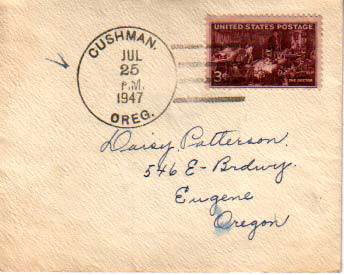 CUSHMAN.
JUL
25
P.M.
1947
OREG.
UNITED STATES POSTAGE
3¢
THE DOCTOR
Daisy Patterson.
546 E - Brdwy.
Eugene
Oregon